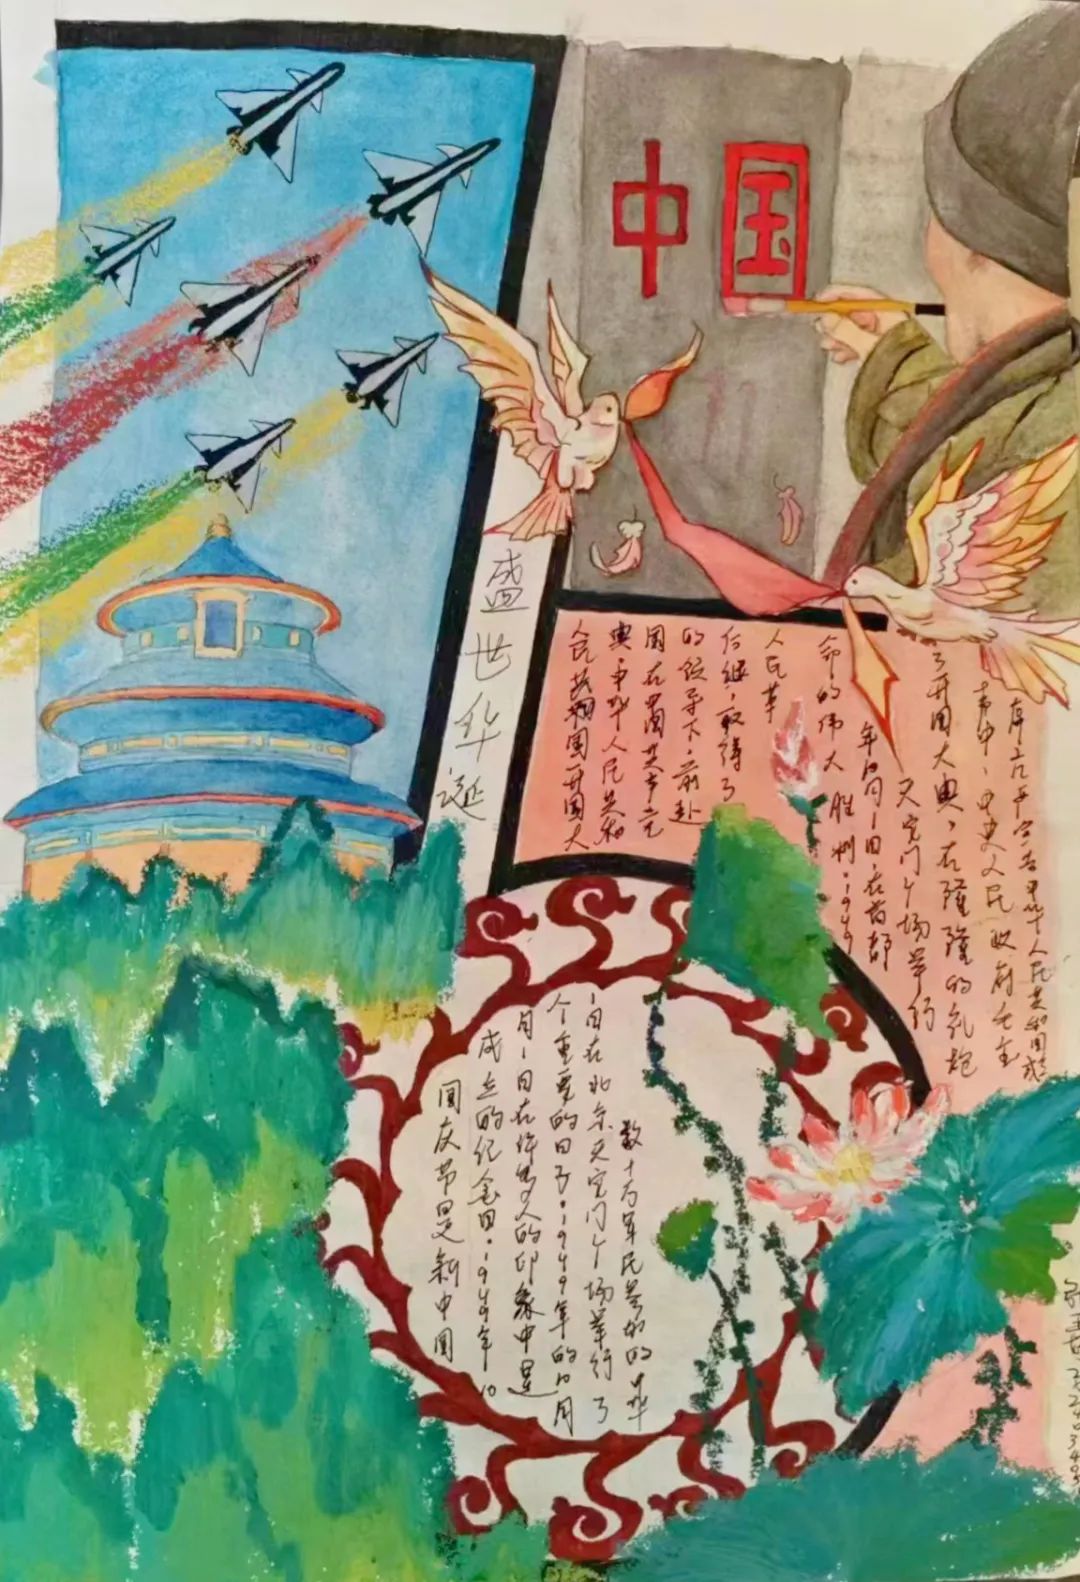 中国
盛世华诞
人民共和国开国大
典,中华人民共和
国在中国共产党
的领导下,前赴
后继,取得了
人民革
命的伟大胜利。1949
年10月1日,在首都
天安门广场举行
了开国大典,在隆隆的礼炮
声中,中央人民政府主
宣告中华人民共和国成
国庆节是新中国
成立的纪念日。1949年10
月1日在许多人的印象中是
个重要的日子。1949年的10月
1日在北京天安门广场举行了
数十万军民参加的中华